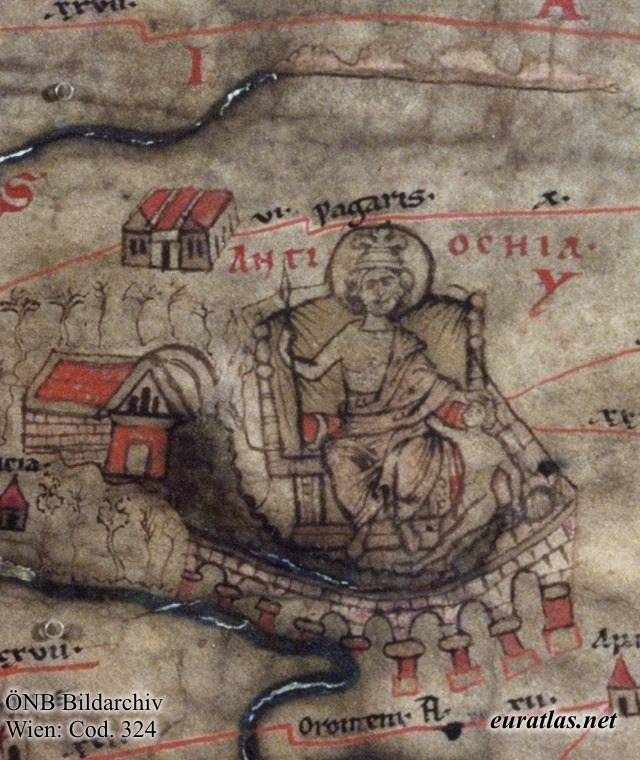 xxvii.
A
I
S
vi. pagaris. x.
ANTI OCHIA.
Y
icia.
xxvii.
Orontem. fl. xii.
ÖNB Bildarchiv
Wien: Cod. 324
euratlas.net